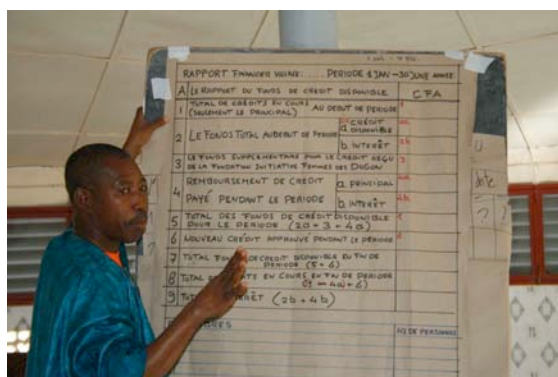 RAPPORT FINANCIER VILLAGE: .... PERIODE 1 JAN - 30 JUNE ANNEE
A LE RAPPORT DU FONDS DE CRÉDIT DISPONIBLE CFA
1 TOTAL DE CRÉDITS EN COURS AU DEBUT DE PERIODE
(SEULEMENT LE PRINCIPAL)
2 LE FONDS TOTAL AU DEBUT DE PERIODE a CRÉDIT DISPONIBLE 2a
b. INTERÊT 2b
3 LE FONDS SUPPLEMENTAIRE POUR LE CREDIT REÇU 3
DE LA FONDATION INITIATIVE FEMMES DES DOGON
4 REMBOURSEMENT DE CRÉDIT a PRINCIPAL 4a
PAYÉ PENDANT LE PERIODE b. INTERÊT
5 TOTAL DES FONDS DE CRÉDIT DISPONIBLE
POUR LE PERIODE (2a + 3 + 4a)
6 NOUVEAU CRÉDIT APPROUVÉ PENDANT LE PERIODE
7 TOTAL FONDS DE CREDIT DISPONIBLE EN FIN DE
PERIODE (5 - 6)
8 TOTAL EN COURS EN FIN DE PERIODE
- 4a + 6)
9 INTERÊT (2b + 4b)
NO DE PERSONNES
date
? ?